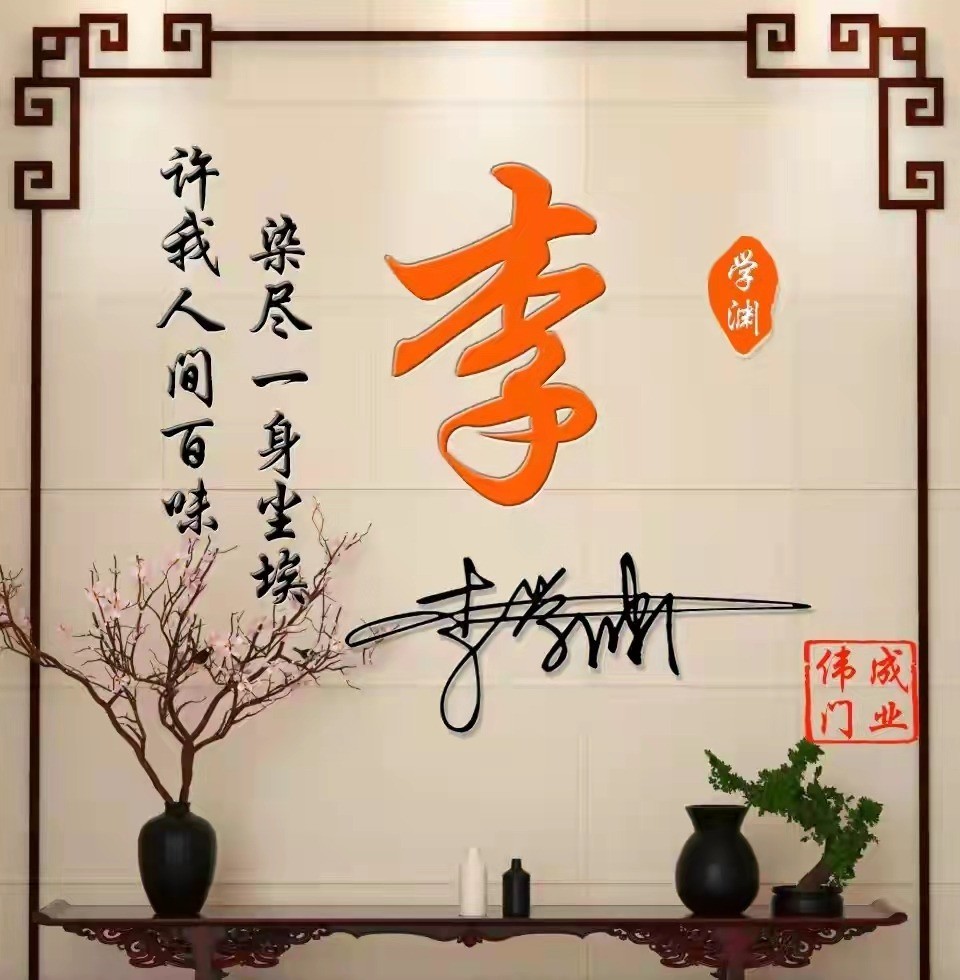 许我人间百味
染尽一身尘埃
李
学渊
李学渊
伟成
门业